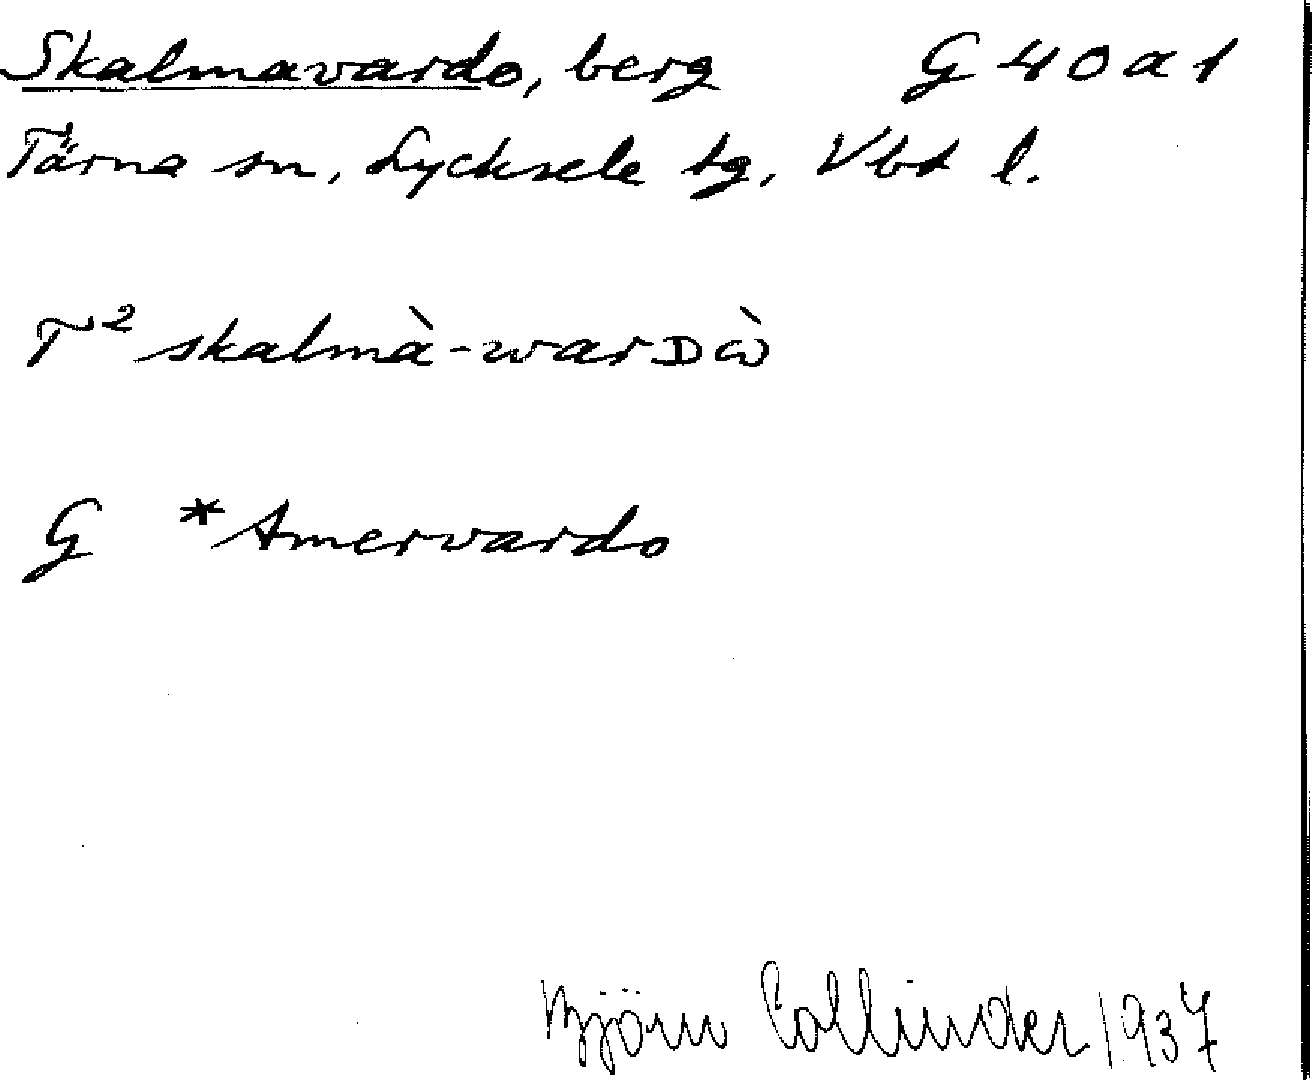 Skalmavardo, berg G 40 a 1
Tärna sn, Lycksele tg, Vbt l.
T² skalmà-warᴅὼ
G *Amervardo
Björn Collinder 1937